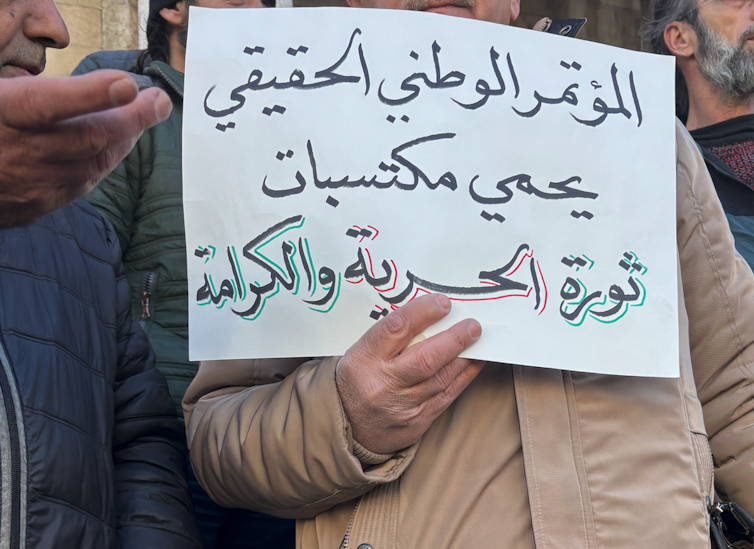 المؤتمر الوطني الحقيقي
يحمي مكتسبات
ثورة الحرية والكرامة